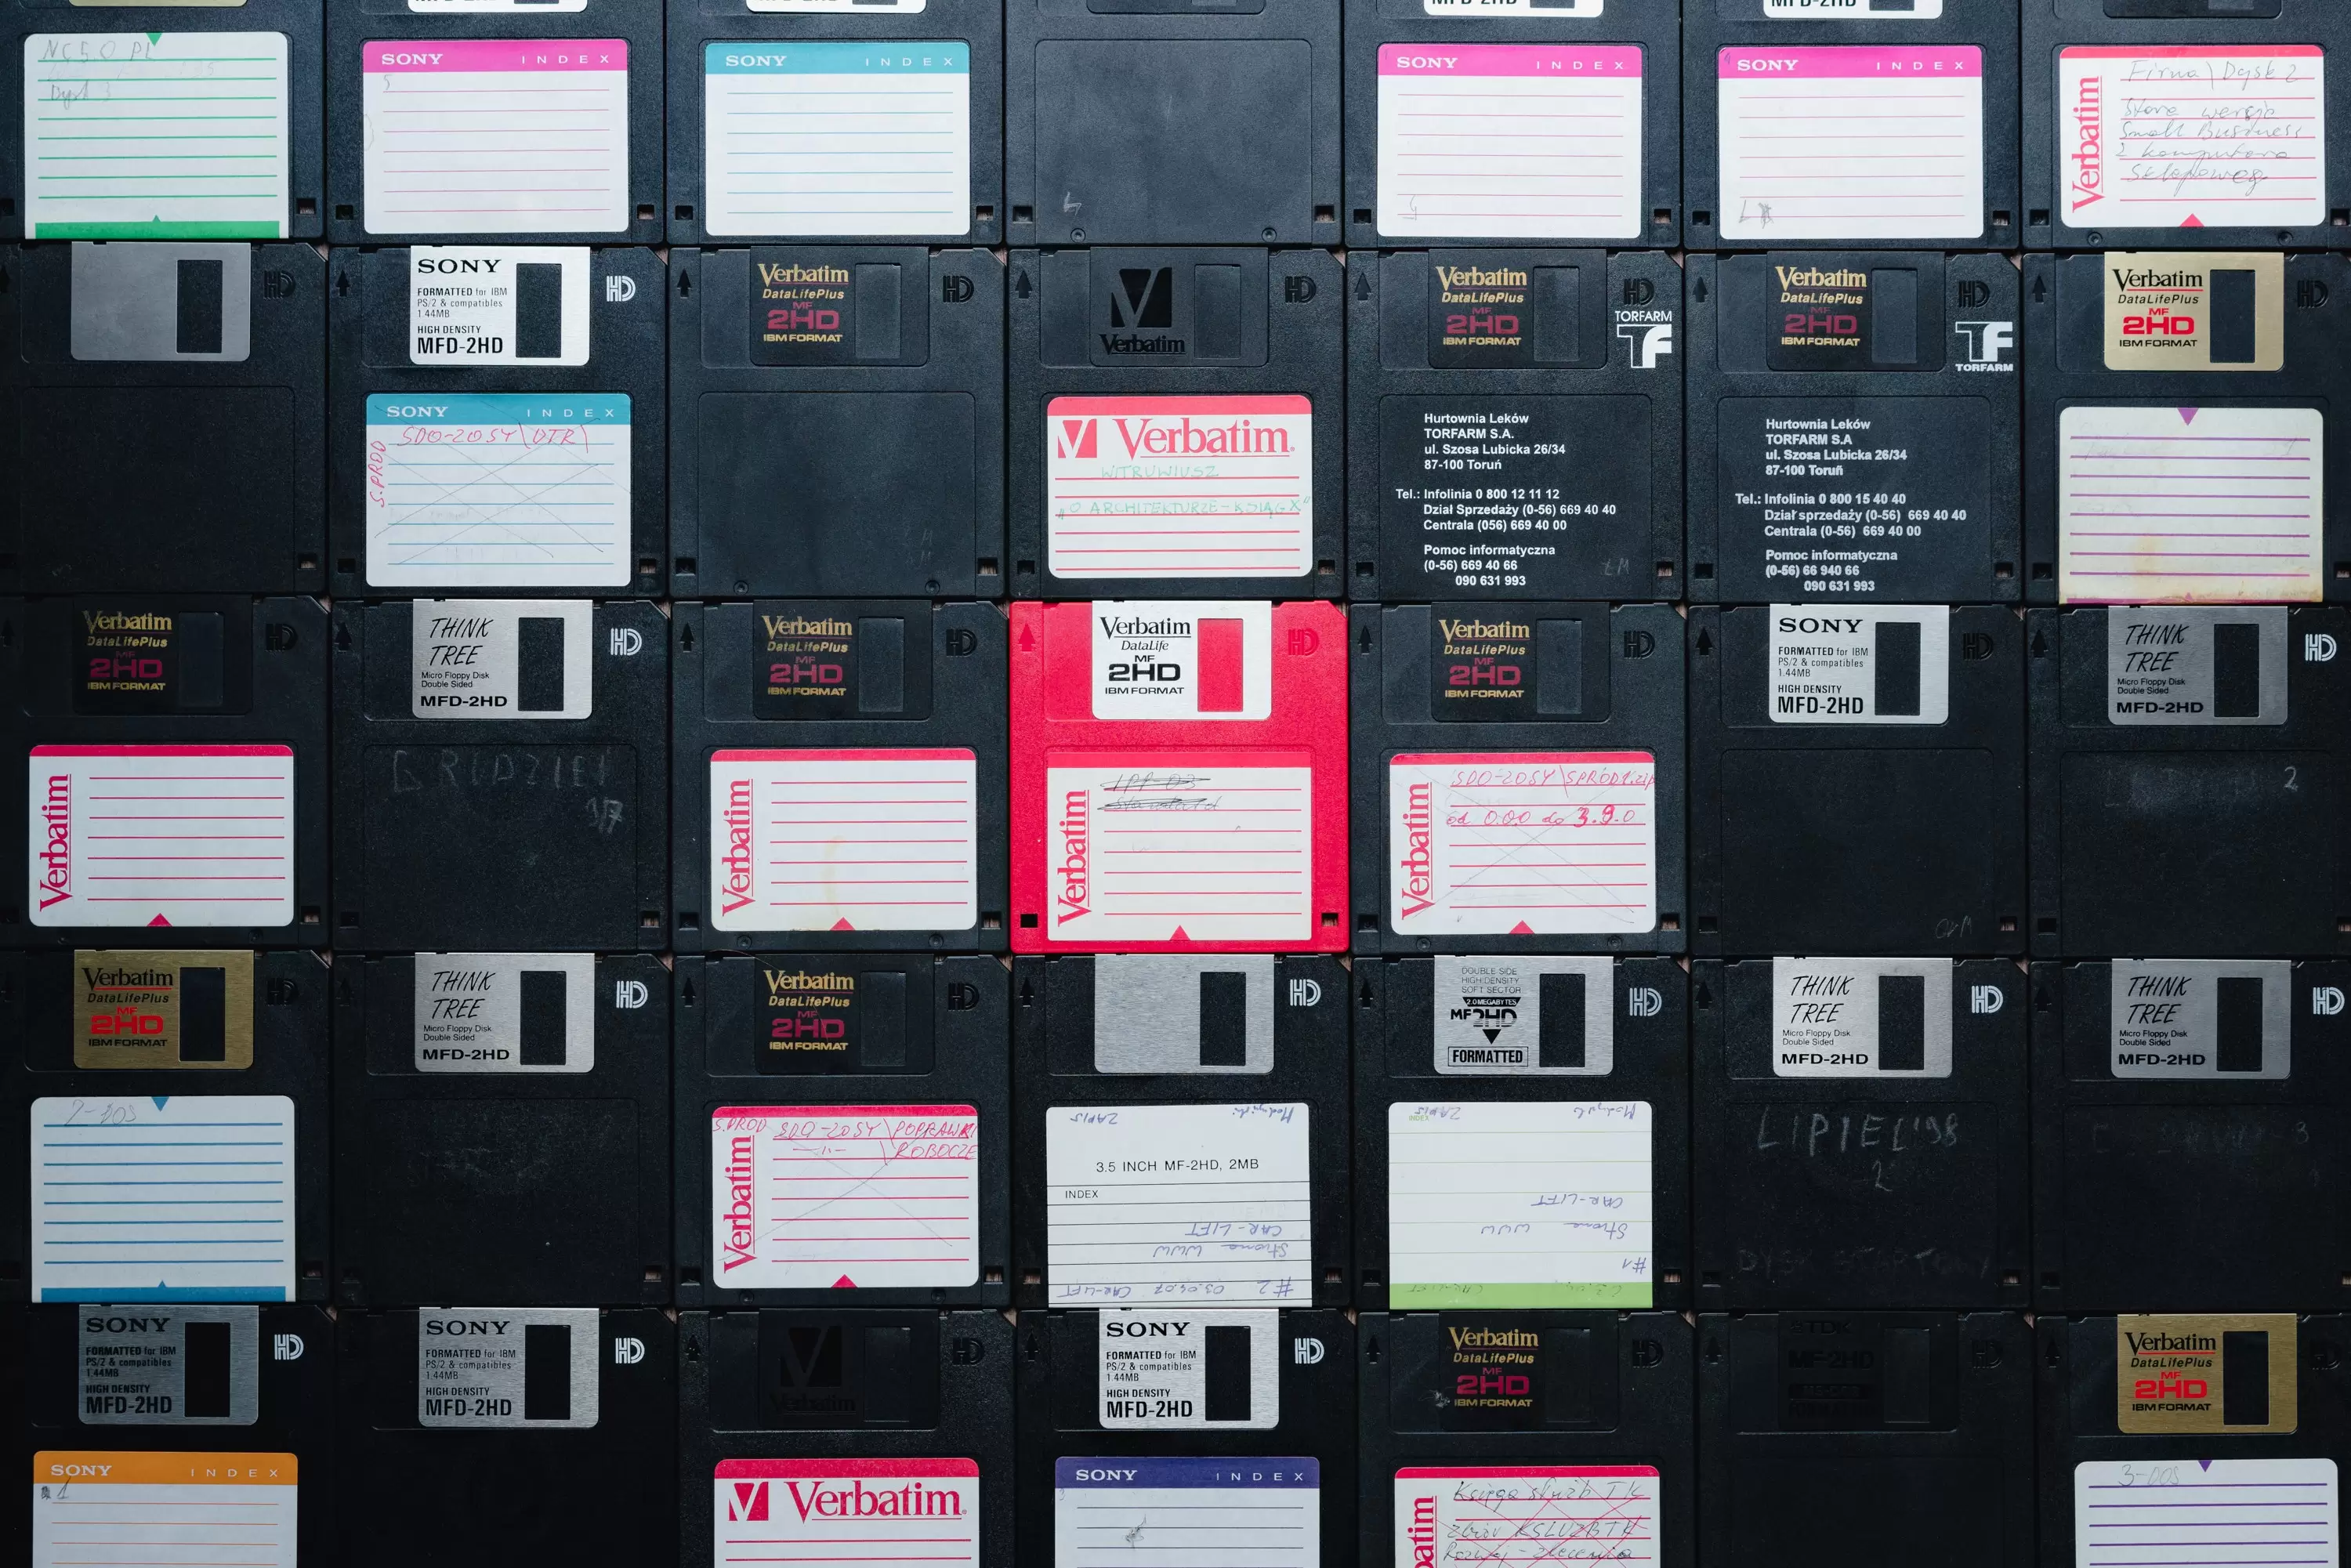 MFD-2HD
MFD-2HD
NC50 PL
Dysk 3
SONY INDEX
5
SONY INDEX
4
SONY INDEX
SONY INDEX
Verbatim
Firma\Dysk 2
Stara wersja
Small Business
z komputera
sklepowego
HD
SONY
FORMATTED for IBM
PS/2 & compatibles
1.44MB
HIGH DENSITY
MFD-2HD
HD
SONY INDEX
S.PROD
SDO-20SY\DTR\
Verbatim
DataLifePlus
MF
2HD
IBM FORMAT
HD
Verbatim
HD
Verbatim
WITRUWIUSZ
"O ARCHITEKTURZE-KSIĄG X"
Verbatim
DataLifePlus
MF
2HD
IBM FORMAT
HD
TORFARM
TF
Hurtownia Leków
TORFARM S.A.
ul. Szosa Lubicka 26/34
87-100 Toruń
Tel.: Infolinia 0 800 12 11 12
Dział Sprzedaży (0-56) 669 40 40
Centrala (056) 669 40 00
Pomoc informatyczna
(0-56) 669 40 66
090 631 993
Verbatim
DataLifePlus
MF
2HD
IBM FORMAT
HD
TF
TORFARM
Hurtownia Leków
TORFARM S.A
ul. Szosa Lubicka 26/34
87-100 Toruń
Tel.: Infolinia 0 800 15 40 40
Dział sprzedaży (0-56) 669 40 40
Centrala (0-56) 669 40 00
Pomoc informatyczna
(0-56) 66 940 66
090 631 993
Verbatim
DataLifePlus
MF
2HD
IBM FORMAT
HD
Verbatim
DataLifePlus
MF
2HD
IBM FORMAT
HD
Verbatim
THINK
TREE
Micro Floppy Disk
Double Sided
MFD-2HD
HD
Verbatim
DataLifePlus
MF
2HD
IBM FORMAT
HD
Verbatim
Verbatim
DataLife
MF
2HD
IBM FORMAT
HD
Verbatim
Verbatim
DataLifePlus
MF
2HD
IBM FORMAT
HD
Verbatim
SDO-20SY\SPROD1.zip
od 0.0.0 do 3.9.0
SONY
FORMATTED for IBM
PS/2 & compatibles
1.44MB
HIGH DENSITY
MFD-2HD
HD
THINK
TREE
Micro Floppy Disk
Double Sided
MFD-2HD
HD
2
Verbatim
DataLifePlus
MF
2HD
IBM FORMAT
HD
THINK
TREE
Micro Floppy Disk
Double Sided
MFD-2HD
HD
Verbatim
DataLifePlus
MF
2HD
IBM FORMAT
HD
S.PROD SDO-20SY\POPRAWKI
-11- \ROBOCZE
Verbatim
HD
ZAPIS
3.5 INCH MF-2HD, 2MB
INDEX
CAR-LIFT
Strona WWW
#2 03.04.07 CAR-LIFT
DOUBLE SIDE
HIGH DENSITY
SOFT SECTOR
2.0 MEGABYTES
MF2HD
FORMATTED
HD
INDEX
ZAPIS
CAR-LIFT
Strona WWW
#1
THINK
TREE
Micro Floppy Disk
Double Sided
MFD-2HD
HD
LIPIEC'98
2
THINK
TREE
Micro Floppy Disk
Double Sided
MFD-2HD
HD
SONY
FORMATTED for IBM
PS/2 & compatibles
1.44MB
HIGH DENSITY
MFD-2HD
HD
SONY INDEX
1
SONY
FORMATTED for IBM
PS/2 & compatibles
1.44MB
HIGH DENSITY
MFD-2HD
HD
Verbatim
HD
Verbatim
SONY
FORMATTED for IBM
PS/2 & compatibles
1.44MB
HIGH DENSITY
MFD-2HD
HD
SONY INDEX
Verbatim
DataLifePlus
MF
2HD
IBM FORMAT
HD
Księga służb TK
zbiór KSLUZBTK
TDK
MF-2HD
HD
Verbatim
DataLifePlus
MF
2HD
IBM FORMAT
3-DOS